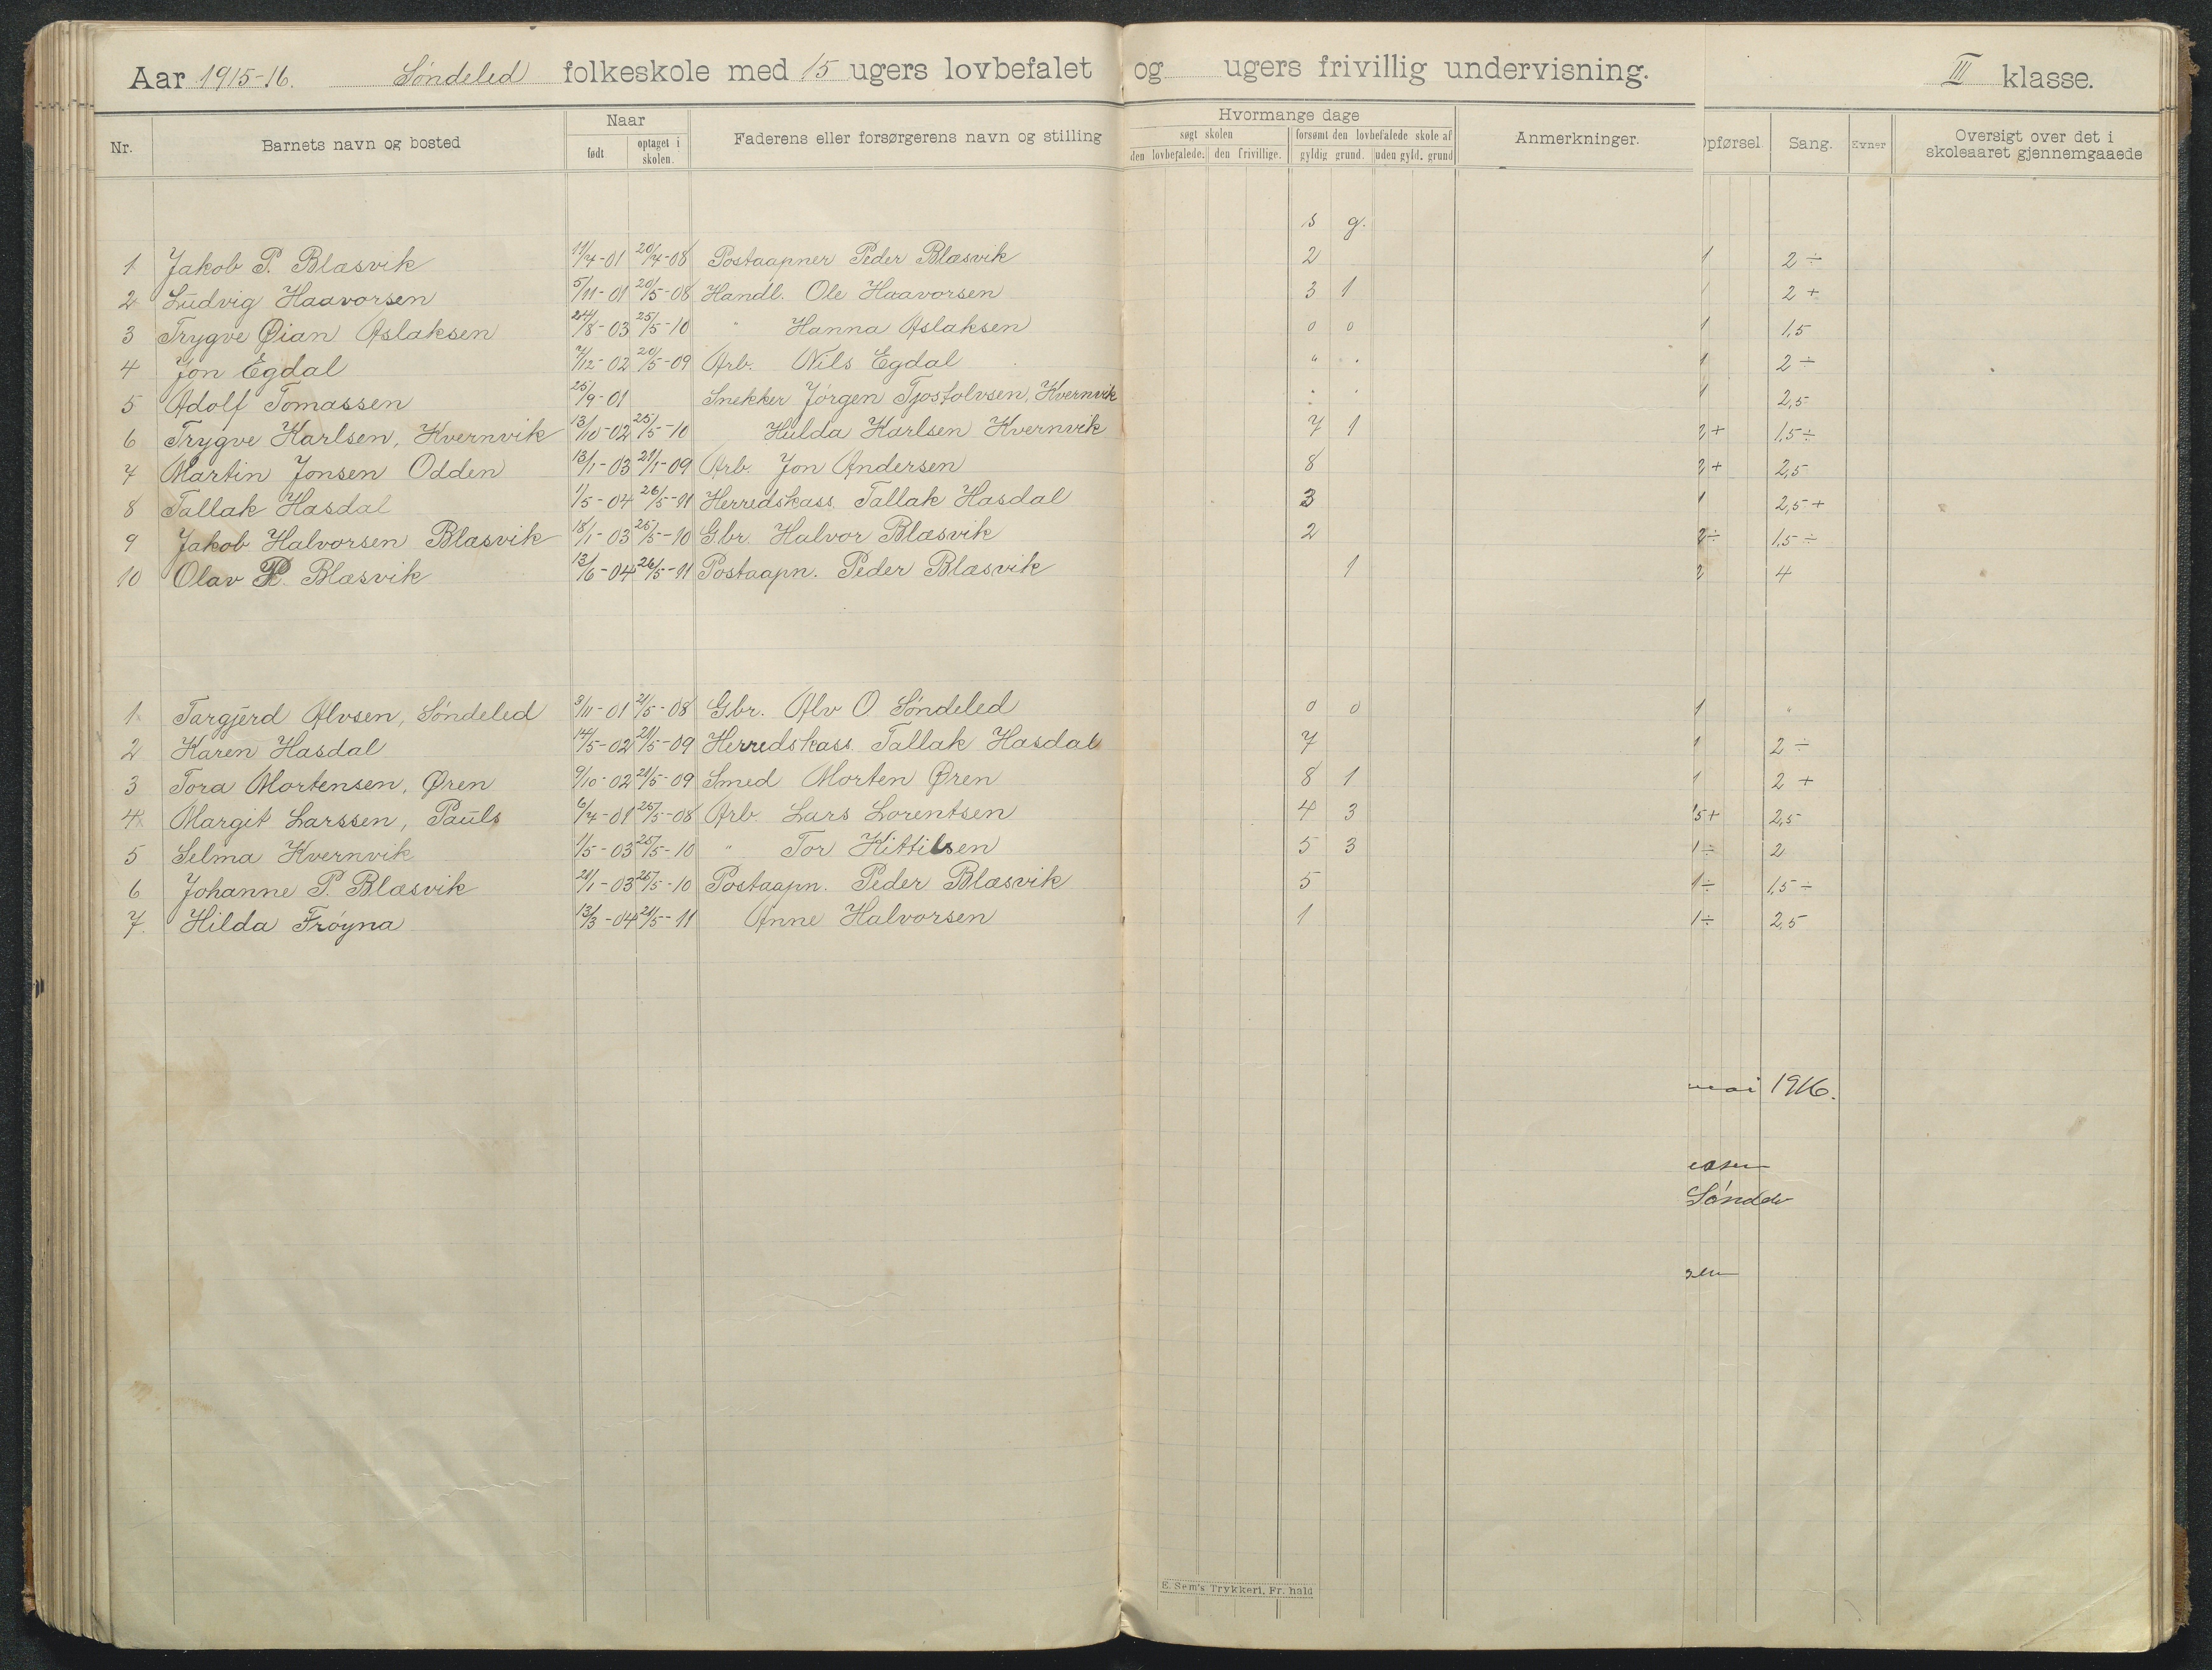 Aar 1915-16. Søndeled folkeskole med 15 ugers lovbefalet og ugers frivillig undervisning. III klasse.
Nr. Barnets navn og bosted Naar født optaget i skolen. Faderens eller forsørgerens navn og stilling Hvormange dage søgt skolen den lovbefalede. den frivillige. forsømt den lovbefalede skole af gyldig grund. uden gyld. grund Anmerkninger. Opførsel Sang. Evner Oversigt over det i skoleaaret gjennemgaaede
s g.
1 Jakob P. Blæsvik 11/4-01 20/4-08 Postaapner Peder Blæsvik 2 1 2 ÷
2 Ludvig Haavorsen 5/11-01 20/5-08 Handl. Ole Haavorsen 3 1 1 2 +
3 Trygve Øian Aslaksen 24/8-03 25/5-10 " Hanna Aslaksen 0 0 1 1,5
4 Jon Egdal 7/12-02 20/5-09 Arb. Nils Egdal " " 1 2 ÷
5 Adolf Tomassen 25/9-01 Snekker Jørgen Tjostolvsen, Kvernvik 1 2,5
6 Trygve Karlsen, Kvernvik 13/10-02 25/5-10 Hulda Karlsen Kvernvik 7 1 2+ 1,5÷
7 Martin Jonsen Odden 13/1-03 21/1-09 Arb. Jon Andersen 8 2+ 2,5
8 Tallak Hasdal 1/5-04 26/5-11 Herredskass. Tallak Hasdal 3 1 2,5+
9 Jakob Halvorsen Blæsvik 18/1-03 25/5-10 Gbr. Halvor Blæsvik 2 2÷ 1,5÷
10 Olav P. Blæsvik 13/6-04 26/5-11 Postaapn. Peder Blæsvik 1 2 4
1 Targjerd Alvsen, Søndeled 3/11-01 21/5-08 Gbr. Alv O. Søndeled 0 0 1 "
2 Karen Hasdal 14/5-02 21/5-09 Herredskass. Tallak Hasdal 7 1 2 ÷
3 Tora Mortensen, Øren 9/10-02 21/5-09 Smed Morten Øren 8 1 1 2 +
4 Margit Larssen, Pauls 6/4-01 25/5-08 Arb. Lars Lorentsen 4 3 5+ 2,5
5 Selma Kvernvik 1/5-03 25/5-10 " Tor Kittilsen 5 3 1÷ 2
6 Johanne P. Blæsvik 21/1-03 25/5-10 Postaapn. Peder Blæsvik 5 1÷ 1,5÷
7. Hilda Frøyna 13/3-04 21/5-11 Anne Halvorsen 1 1÷ 2,5
mai 1916.
Sønde
E. Sem's Trykkeri, Fr. hald